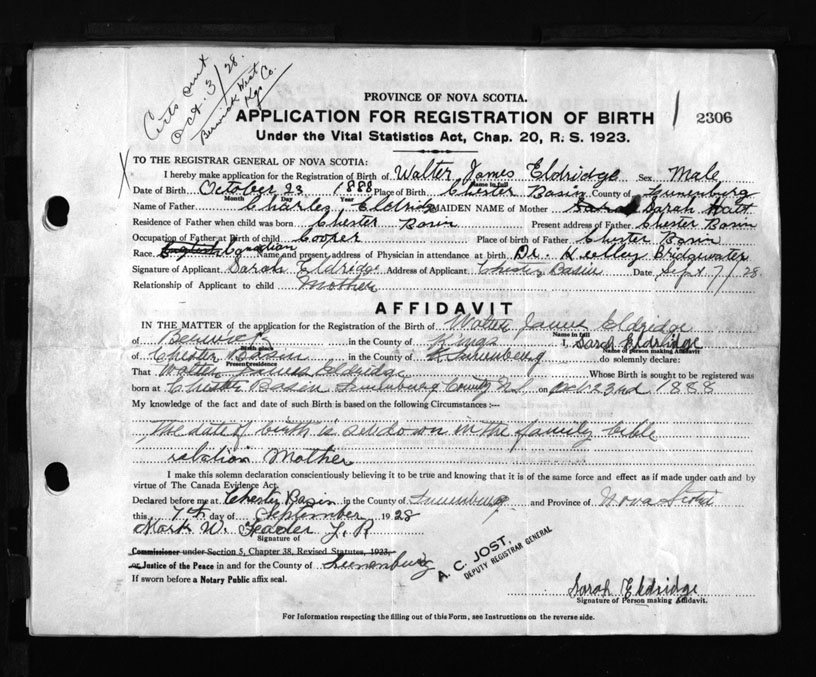 Certs sent
Oct. 3/28.
Berwick West
Kgs Co.
PROVINCE OF NOVA SCOTIA.
APPLICATION FOR REGISTRATION OF BIRTH
2306
Under the Vital Statistics Act, Chap. 20, R. S. 1923.
X TO THE REGISTRAR GENERAL OF NOVA SCOTIA:
I hereby make application for the Registration of Birth of Walter James Eldridge Sex Male
Name in full
Date of Birth October 23 1888 Place of Birth Chester Basin County of Lunenburg
Month Day Year
Name of Father Charley Eldridge MAIDEN NAME of Mother Sarah Hatt
Residence of Father when child was born Chester Basin Present address of Father Chester Basin
Occupation of Father at Birth of child Cooper Place of birth of Father Chester Basin
Race. English Name and present address of Physician in attendance at birth. Dr. Bridgewater
Signature of Applicant. Sarah Eldridge Address of Applicant Chester Basin Date Sept 7/28.
Relationship of Applicant to child Mother
AFFIDAVIT
IN THE MATTER of the application for the Registration of the Birth of Walter James Eldridge
Name in full
of Berwick in the County of Kings I, Sarah Eldridge
Birth place Name of Person making Affidavit
of Chester Basin in the County of Lunenburg do solemnly declare:
Present residence
That Walter James Eldridge Whose Birth is sought to be registered was
born at Chester Basin Lunenburg County N.S. on Oct 23nd 1888
My knowledge of the fact and date of such Birth is based on the following Circumstances :—
The date of birth is set down in the family bible
relation Mother
I make this solemn declaration conscientiously believing it to be true and knowing that it is of the same force and effect as if made under oath and by
virtue of The Canada Evidence Act.
Declared before me at Chester Basin in the County of Lunenburg and Province of Nova Scotia
this 7th day of September 1928
Mark W.
Signature of
Commissioner under Section 5, Chapter 38, Revised Statutes, 1923,
or Justice of the Peace in and for the County of Lunenburg
A. C. JOST,
DEPUTY REGISTRAR GENERAL
If sworn before a Notary Public affix seal.
Sarah Eldridge
Signature of Person making Affidavit.
For Information respecting the filling out of this Form, see Instructions on the reverse side.